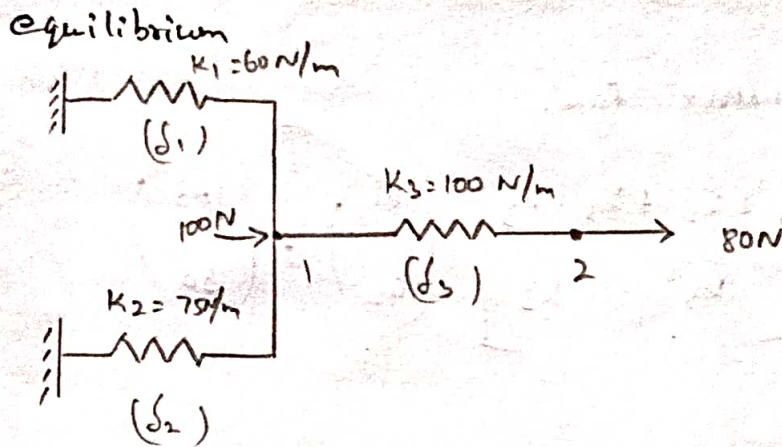 equilibrium
K₁ = 60 N/m
(δ₁)
K₃ = 100 N/m
100N
1
(δ₃)
2
80N
K₂ = 75N/m
(δ₂)